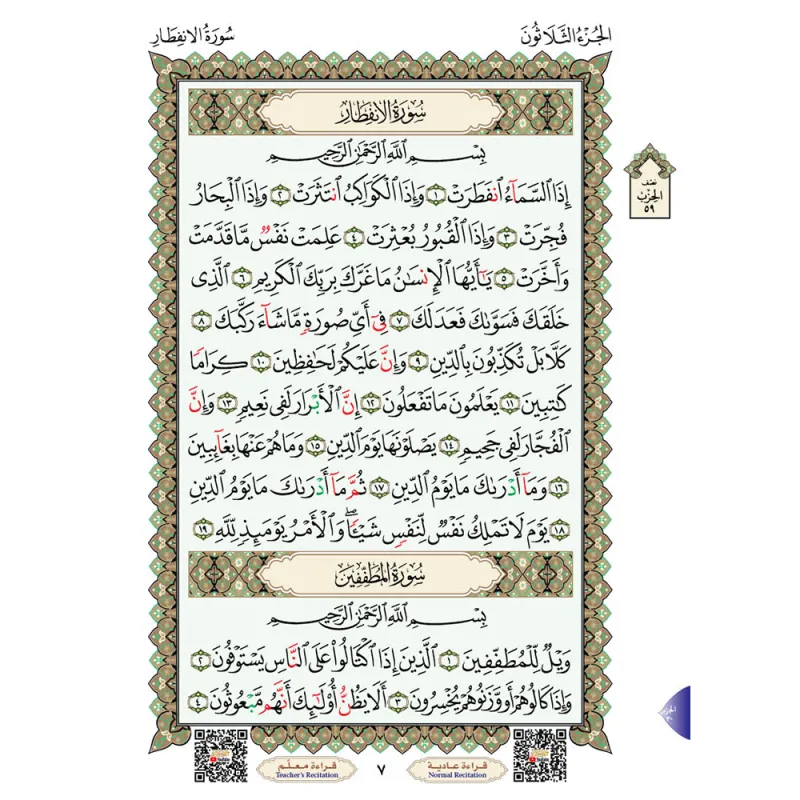 الجُزْءُ الثَّلَاثُونَ
سُورَةُ الانفِطَار
سُورَةُ الانفِطَارِ
بِسْمِ اللَّهِ الرَّحْمَٰنِ الرَّحِيمِ
إِذَا ٱلسَّمَآءُ ٱنفَطَرَتْ ١ وَإِذَا ٱلْكَوَاكِبُ ٱنتَثَرَتْ ٢ وَإِذَا ٱلْبِحَارُ
فُجِّرَتْ ٣ وَإِذَا ٱلْقُبُورُ بُعْثِرَتْ ٤ عَلِمَتْ نَفْسٌ مَّا قَدَّمَتْ
وَأَخَّرَتْ ٥ يَـٰٓأَيُّهَا ٱلْإِنسَـٰنُ مَا غَرَّكَ بِرَبِّكَ ٱلْكَرِيمِ ٦ ٱلَّذِى
خَلَقَكَ فَسَوَّىٰكَ فَعَدَلَكَ ٧ فِىٓ أَىِّ صُورَةٍ مَّا شَآءَ رَكَّبَكَ ٨
كَلَّا بَلْ تُكَذِّبُونَ بِٱلدِّينِ ٩ وَإِنَّ عَلَيْكُمْ لَحَـٰفِظِينَ ١٠ كِرَامًا
كَـٰتِبِينَ ١١ يَعْلَمُونَ مَا تَفْعَلُونَ ١٢ إِنَّ ٱلْأَبْرَارَ لَفِى نَعِيمٍ ١٣ وَإِنَّ
ٱلْفُجَّارَ لَفِى جَحِيمٍ ١٤ يَصْلَوْنَهَا يَوْمَ ٱلدِّينِ ١٥ وَمَا هُمْ عَنْهَا بِغَآئِبِينَ
١٦ وَمَآ أَدْرَىٰكَ مَا يَوْمُ ٱلدِّينِ ١٧ ثُمَّ مَآ أَدْرَىٰكَ مَا يَوْمُ ٱلدِّينِ
١٨ يَوْمَ لَا تَمْلِكُ نَفْسٌ لِّنَفْسٍ شَيْـًٔا ۖ وَٱلْأَمْرُ يَوْمَئِذٍ لِّلَّهِ ١٩
سُورَةُ المُطَفِّفِينَ
بِسْمِ اللَّهِ الرَّحْمَٰنِ الرَّحِيمِ
وَيْلٌ لِّلْمُطَفِّفِينَ ١ ٱلَّذِينَ إِذَا ٱكْتَالُوا۟ عَلَى ٱلنَّاسِ يَسْتَوْفُونَ ٢
وَإِذَا كَالُوهُمْ أَو وَّزَنُوهُمْ يُخْسِرُونَ ٣ أَلَا يَظُنُّ أُو۟لَـٰٓئِكَ أَنَّهُم مَّبْعُوثُونَ ٤
نصف
الحِزْب
٥٩
الجزء
٣٠
قراءة عادية
Normal Recitation
٧
قراءة معلّم
Teacher's Recitation